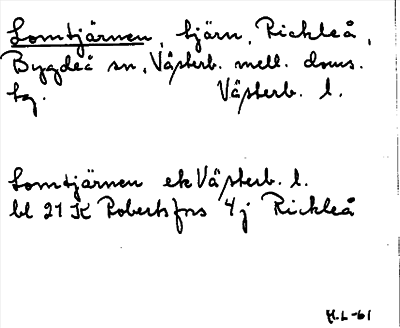 Lomtjärnen, tjärn, Rickleå,
Bygdeå sn, Västerb. mell. doms.
tg. Västerb. l.
Lomtjärnen ek Västerb. l.
bl 21 K Robertsfors 4j Rickleå
H.L-61